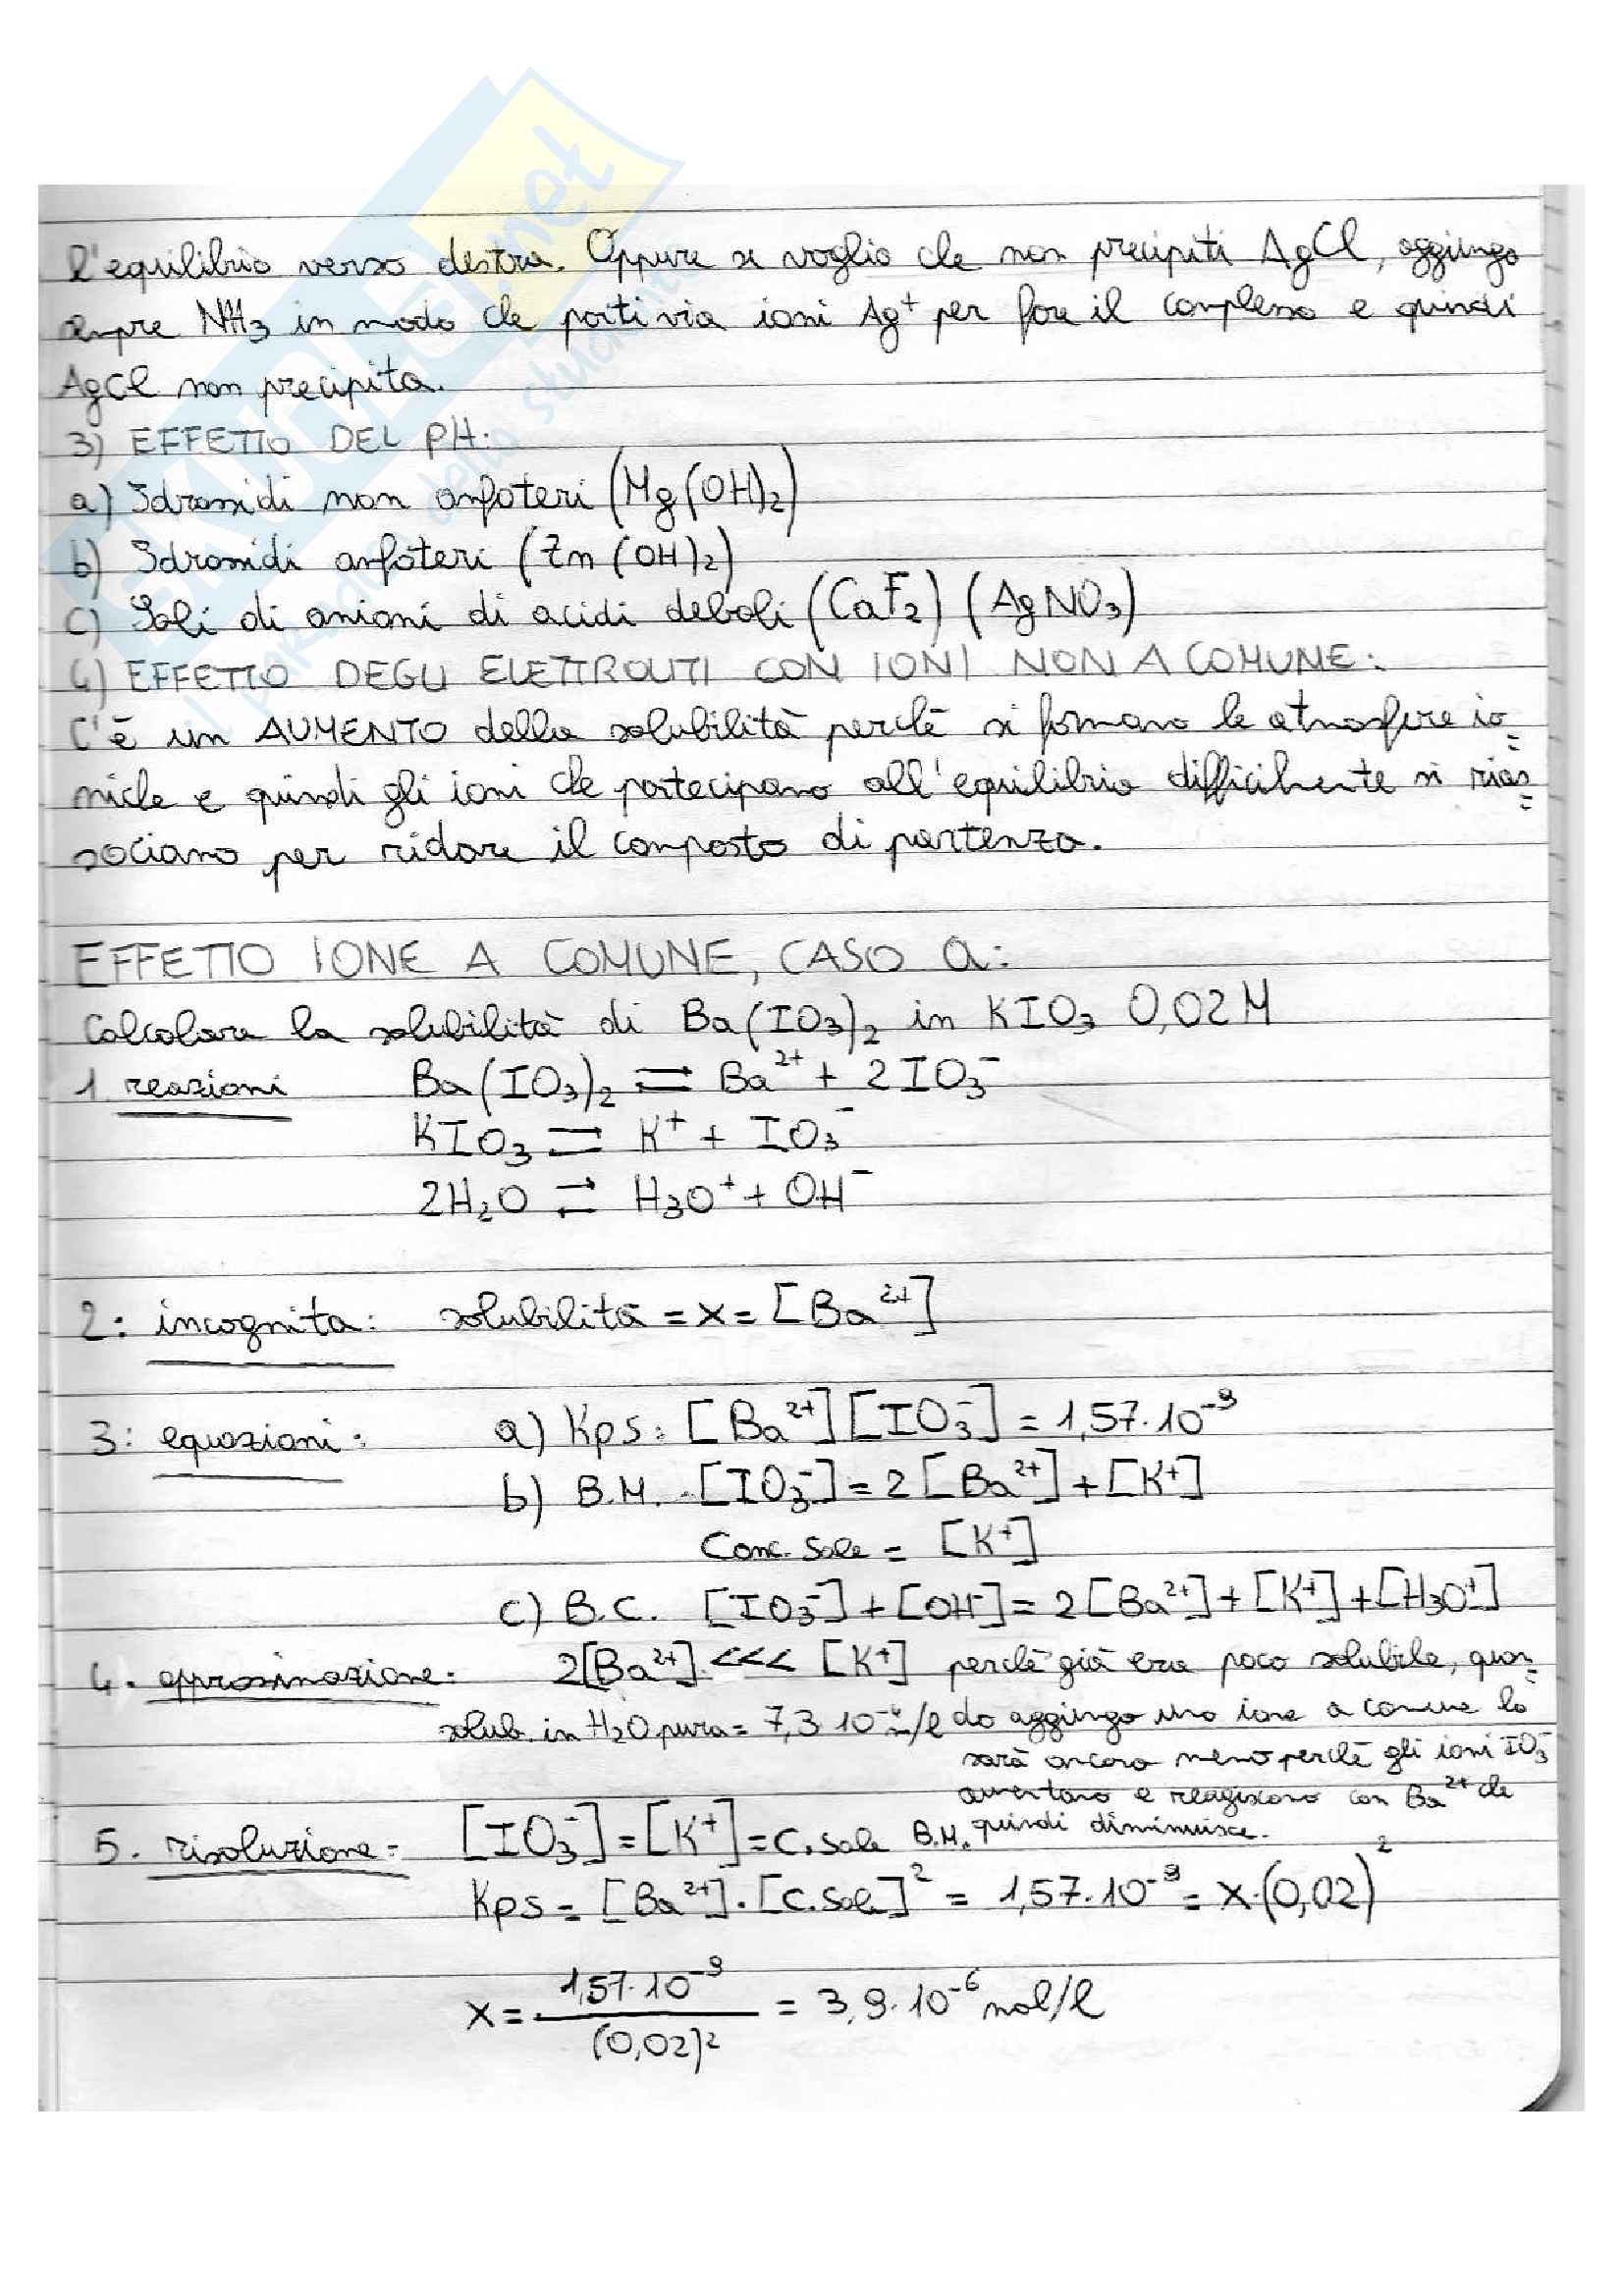 l'equilibrio verso destra. Oppure se voglio che non precipiti AgCl, aggiungo
sempre NH3 in modo che porti via ioni Ag⁺ per fare il complesso e quindi
AgCl non precipita.
3) EFFETTO DEL PH:
a) Idrossidi non anfoteri (Mg(OH)₂)
b) Idrossidi anfoteri (Zn(OH)₂)
c) Sali di anioni di acidi deboli (CaF₂) (AgNO₃)
4) EFFETTO DEGLI ELETTROLITI CON IONI NON A COMUNE:
C'è un AUMENTO della solubilità perchè si formano le atmosfere io=
niche e quindi gli ioni che partecipano all'equilibrio difficilmente si rias=
sociano per ridare il composto di partenza.
EFFETTO IONE A COMUNE, CASO a:
Calcolare la solubilità di Ba(IO₃)₂ in KIO₃ 0,02 M
1. reazioni Ba(IO₃)₂ ⇌ Ba²⁺ + 2IO₃⁻
KIO₃ ⇌ K⁺ + IO₃⁻
2H₂O ⇌ H₃O⁺ + OH⁻
2: incognita: solubilità = x = [Ba²⁺]
3: equazioni: a) Kps: [Ba²⁺][IO₃⁻] = 1,57·10⁻⁹
b) B.M. [IO₃⁻] = 2[Ba²⁺] + [K⁺]
Conc. Sale = [K⁺]
c) B.C. [IO₃⁻] + [OH⁻] = 2[Ba²⁺] + [K⁺] + [H₃O⁺]
4. approssimazione: 2[Ba²⁺] <<< [K⁺] perchè già era poco solubile, quan=
solub. in H₂O pura = 7,3·10⁻⁴ m/l do aggiungo uno ione a comune lo
sarà ancora meno perchè gli ioni IO₃⁻
aumentano e reagiscono con Ba²⁺ che
5. risoluzione: [IO₃⁻] = [K⁺] = C.Sale B.M. quindi diminuisce.
Kps = [Ba²⁺]·[C.Sale]² = 1,57·10⁻⁹ = x·(0,02)²
x = 1,57·10⁻⁹ / (0,02)² = 3,9·10⁻⁶ mol/l
SKUOLA.net
il paradiso dello studente